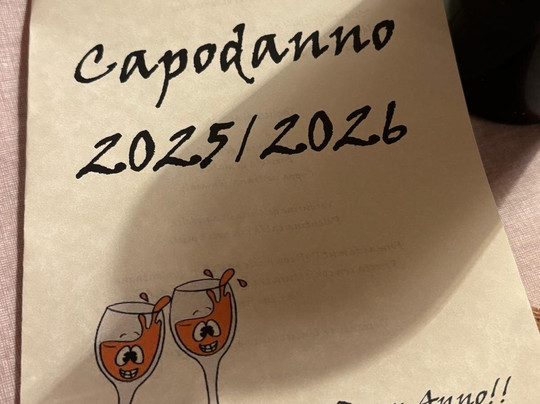 Capodanno
2025/2026
Anno!!